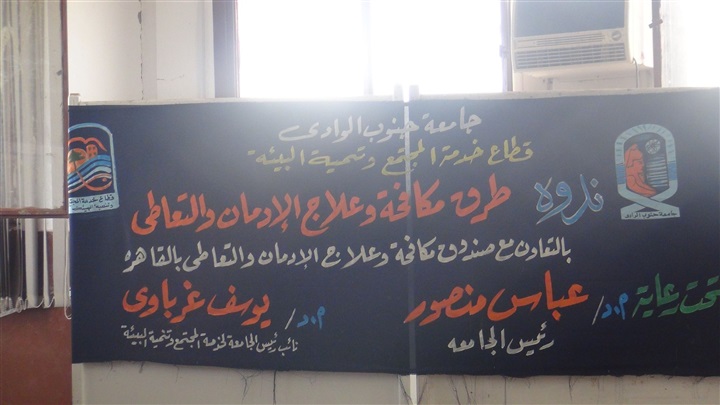 جامعة جنوب الوادى
قطاع خدمة المجتمع وتنمية البيئة
ندوة طرق مكافحة وعلاج الإدمان والتعاطى
بالتعاون مع صندوق مكافحة وعلاج الإدمان والتعاطى بالقاهره
تحت رعاية
ا.د/ عباس منصور
رئيس الجامعه
ا.د/ يوسف غرباوى
نائب رئيس الجامعة لخدمة المجتمع وتنمية البيئة
جامعة جنوب الوادى
قطاع خدمة
وتنمية البيئة